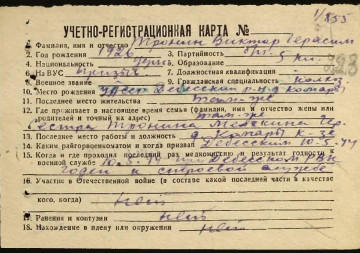 1/853
УЧЕТНО-РЕГИСТРАЦИОННАЯ КАРТА №
1. Фамилия, имя и отчество Тронин Виктор Герасим
2. Год рождения 1926 3. Партийность
4. Национальность 5. Образование 5 кл.
6. На ВУС призыв 7. Должностная квалификация
8. Военное звание 9. Гражданская специальность колхоз
10. Место рождения УАССР Дебесский р-н д. Комары
11. Последнее место жительства там-же
12. Где проживает в настоящее время семья (фамилия, имя и отчество жены или
родителей и точный их адрес) там-же
сестра Тронина Гер.
13. Последнее место работы и должность д. Комары к-з
14. Каким райгорвоенкоматом и когда призван Дебесским 10-5-44
15. Когда и где проходил последний раз медкомиссию и результат годности к
военной службе 10.5.44 при Дебесском РВК
годен к строевой службе
16. Участие в Отечественной войне (в составе какой последней части в качестве
кого, когда) нет
17. Ранения и контузии нет
18. Нахождение в плену или окружении нет